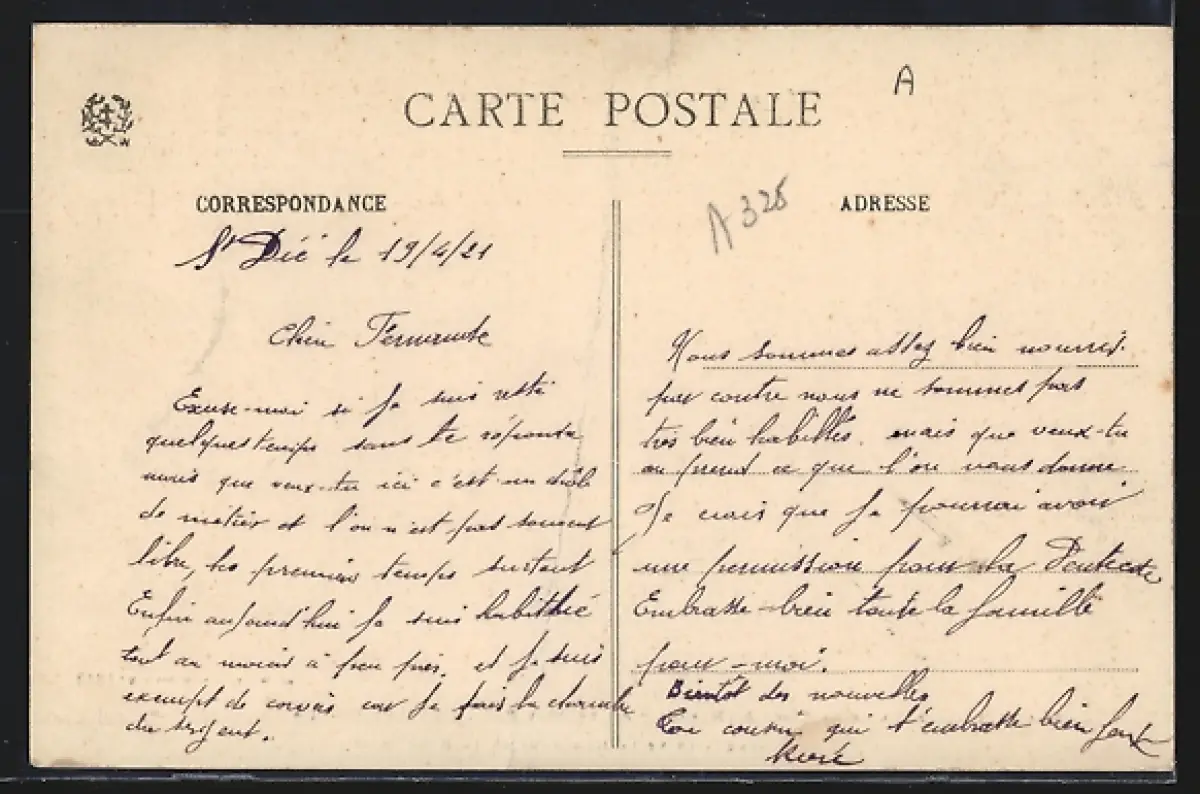 CARTE POSTALE
A
CORRESPONDANCE
A 328
ADRESSE
St Dié le 19/4/21
Chère Fernande
Excuse-moi si je suis resté
quelques temps sans te répondre
mais que veux-tu ici c'est un drôle
de métier et l'on n'est pas souvent
libre, les premiers temps surtout
Enfin aujourd'hui je suis habitué
tout au moins à peu près. et je suis
exempt de corvées car je fais la chambre
du sergent.
Nous sommes assez bien nourris.
par contre nous ne sommes pas
très bien habillés. mais que veux-tu
on prend ce que l'on vous donne
Je crois que je pourrai avoir
une permission pour la Pentecôte
Embrasse bien toute la famille
pour-moi.
Bientôt des nouvelles
Ton cousin qui t'embrasse bien fort